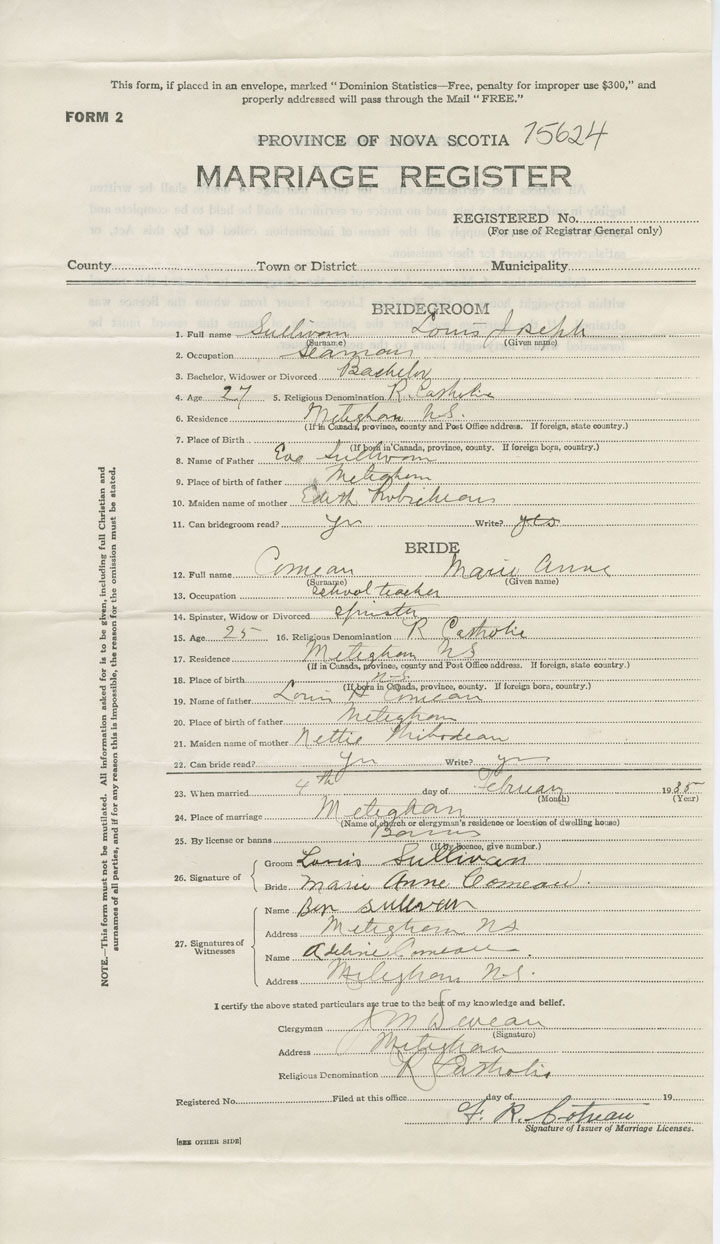 This form, if placed in an envelope, marked "Dominion Statistics—Free, penalty for improper use $300," and
properly addressed will pass through the Mail "FREE."
FORM 2
PROVINCE OF NOVA SCOTIA 15624
MARRIAGE REGISTER
REGISTERED No.
(For use of Registrar General only)
County Town or District Municipality
BRIDEGROOM
1. Full name Sullivan Louis Joseph
(Surname) (Given name)
2. Occupation Seaman
3. Bachelor, Widower or Divorced Bachelor
4. Age 27 5. Religious Denomination R. Catholic
6. Residence Meteghan N.S.
(If in Canada, province, county and Post Office address. If foreign, state country.)
7. Place of Birth
(If born in Canada, province, county. If foreign born, country.)
8. Name of Father Sullivan
9. Place of birth of father Meteghan
10. Maiden name of mother Edith Robicheau
11. Can bridegroom read? yes Write? yes
BRIDE
12. Full name Comeau Marie Anne
(Surname) (Given name)
13. Occupation School teacher
14. Spinster, Widow or Divorced Spinster
15. Age 25 16. Religious Denomination R Catholic
17. Residence Meteghan NS
(If in Canada, province, county and Post Office address. If foreign, state country.)
18. Place of birth N.S.
(If born in Canada, province, county. If foreign born, country.)
19. Name of father Louis H Comeau
20. Place of birth of father Meteghan
21. Maiden name of mother Nettie Thibodeau
22. Can bride read? yes Write? yes
23. When married 4th day of February 1935
(Month) (Year)
24. Place of marriage Meteghan
(Name of church or clergyman's residence or location of dwelling house)
25. By license or banns Banns
(If by licence, give number.)
26. Signature of
Groom Louis Sullivan
Bride Marie Anne Comeau.
27. Signatures of Witnesses
Name Ben Sullivan
Address Meteghan NS
Name Adeline Comeau
Address Meteghan N.S.
I certify the above stated particulars are true to the best of my knowledge and belief.
Clergyman J M Deveau
(Signature)
Address Meteghan
Religious Denomination R Catholic
Registered No. Filed at this office day of 19
F. R. Cotreau
Signature of Issuer of Marriage Licenses.
[SEE OTHER SIDE]
NOTE.—This form must not be mutilated. All information asked for is to be given, including full Christian and
surnames of all parties, and if for any reason this is impossible, the reason for the omission must be stated.